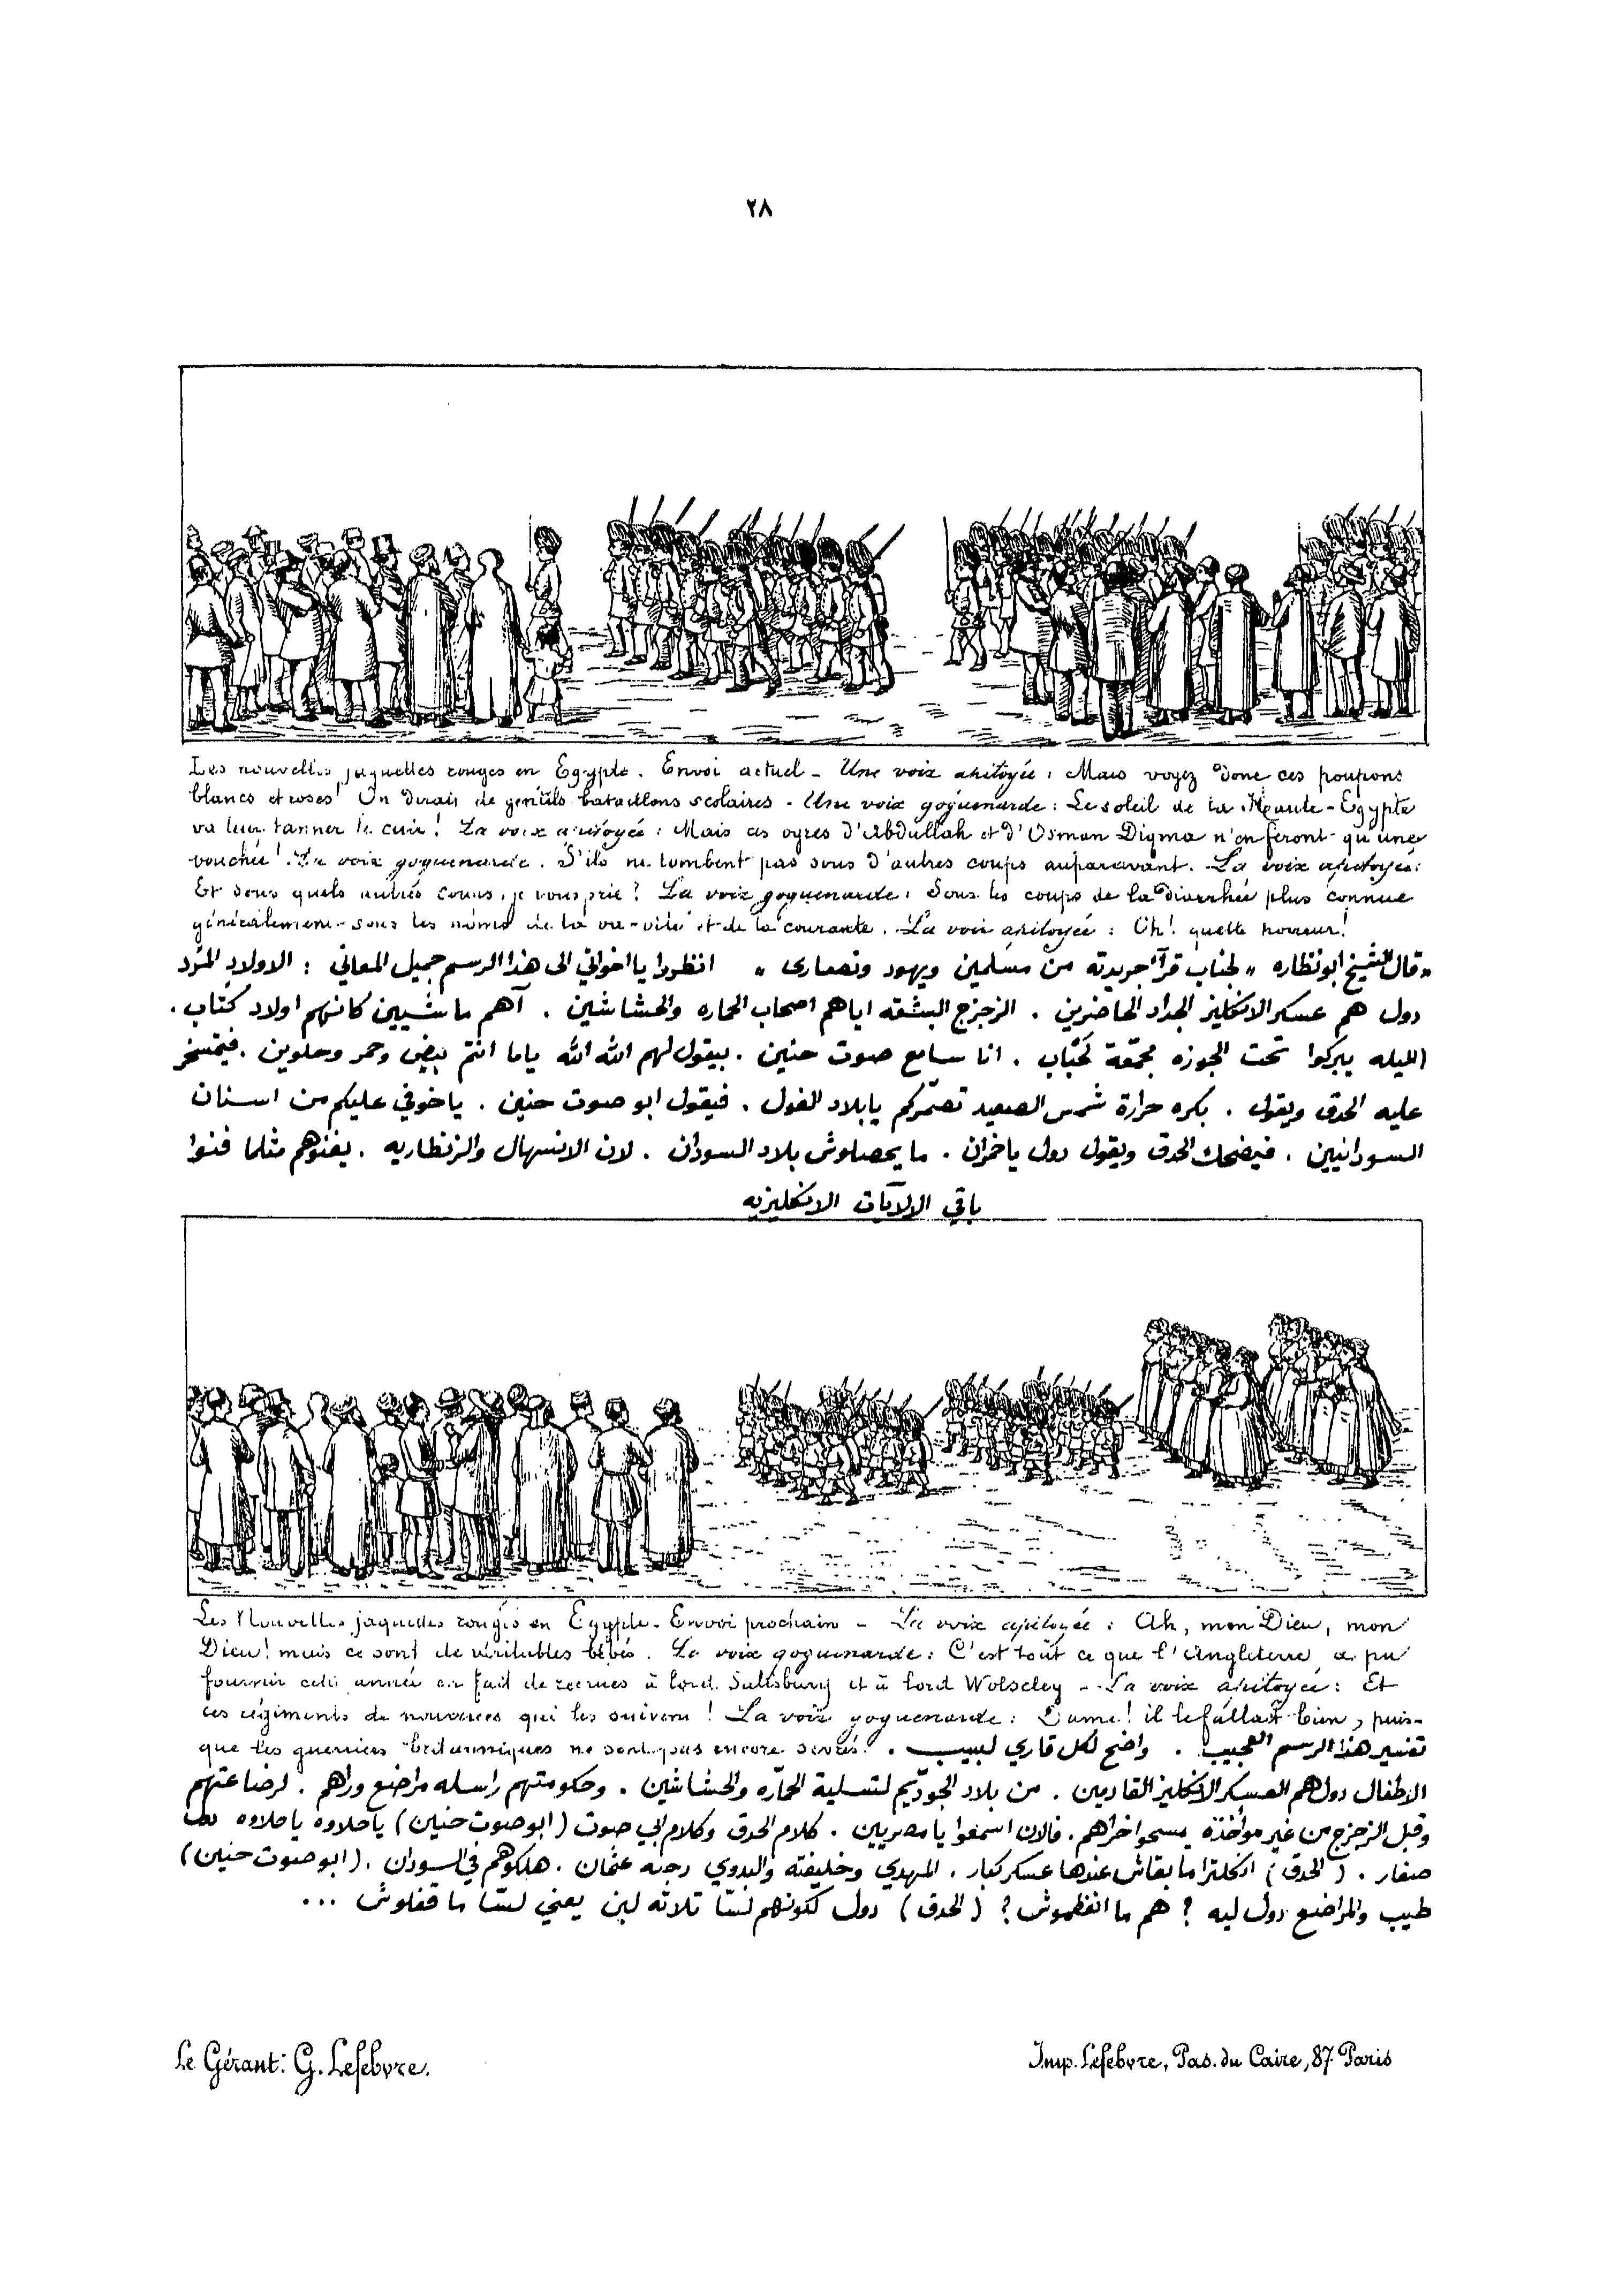 ٢٨
Les nouvelles jaquettes rouges en Egypte. Envoi actuel – Une voix apitoyée : Mais voyez donc ces poupons
blancs et roses ! On dirait de gentils bataillons scolaires – Une voix goguenarde : Le soleil de la Haute-Egypte
va leur tanner le cuir ! La voix apitoyée : Mais ces ogres d'Abdullah et d'Osman Digma n'en feront qu'une
bouchée ! La voix goguenarde. S'ils ne tombent pas sous d'autres coups auparavant. La voix apitoyée :
Et sous quels autres coups, je vous prie ? La voix goguenarde : Sous les coups de la diarrhée plus connue
généralement sous les noms de la va-vite et de la courante. La voix apitoyée : Oh ! quelle horreur !
«قال الشيخ ابو نظاره» لجناب قرآء جريدته من مسلمين ويهود ونصارى « انظروا يا اخواني الى هذا الرسم جميل المعاني : الاولاد المرد
دول هم عسكر الانكليز الجداد الحاضرين . الزجزج البشقه اياهم اصحاب الحاره والحشاشين . آهم ماشيين كانهم اولاد كتّاب .
الليله يبركوا تحت الجوزه مجمّعة كحّاب . انا سامع صوت حنين . بيقول لهم الله الله ياما انتم بيض وحمر وحلوين . فيتمسخر
عليه الحدق ويقول . بكره حرارة شمس الصعيد تصمّركم يابلاد الفول . فيقول ابو صوت حنين . ياخوفي عليكم من اسنان
السودانيين . فيضحك الحدق ويقول دول ياخزان . ما يحصلوش بلاد السودان . لان الانسهال والزنطاريه . يفنوهم مثلما فنوا
باقي الالايات الانكليزيه
Les Nouvelles jaquettes rouges en Egypte – Envoi prochain – La voix apitoyée : Ah, mon Dieu, mon
Dieu ! mais ce sont de véritables bébés. La voix goguenarde : C'est tout ce que l'Angleterre a pu
fournir cette année en fait de recrues à lord Salisbury et à lord Wolseley – La voix apitoyée : Et
ces régiments de nourrices qui les suivent ! La voix goguenarde : Dame ! il le fallait bien, puis-
que les guerriers britanniques ne sont pas encore sevrés !
تفسير هذا الرسم العجيب . واضح لكل قاري لبيب .
الاطفال دول هم العسكر الانكليز القادمين . من بلاد الجودّيم لتسلية الحمّاره والحشاشين . وحكومتهم راسله مراضع وراهم . لرضاعتهم
وقبل الزجزج من غير مؤاخذة يمسحوا خراهم . فالان اسمعوا يا مصريين . كلام الحدق وكلام ابي صوت (ابو صوت حنين) ياحلاوه ياحلاوه دول
صغار . (الحدق) انكلترا ما بقاش عندها عسكر كبار . المهدي وخليفته والبدوي دجنه عثمان . هلكوهم في السودان . (ابو صوت حنين)
طيب والمراضع دول ليه ؟ هم ما انفطموش ؟ (الحدق) دول لكونهم لسّا تلاته لبن يعني لسّا ما قفلوش ...
Le Gérant : G. Lefebvre.
Imp. Lefebvre, Pas. du Caire, 87 Paris